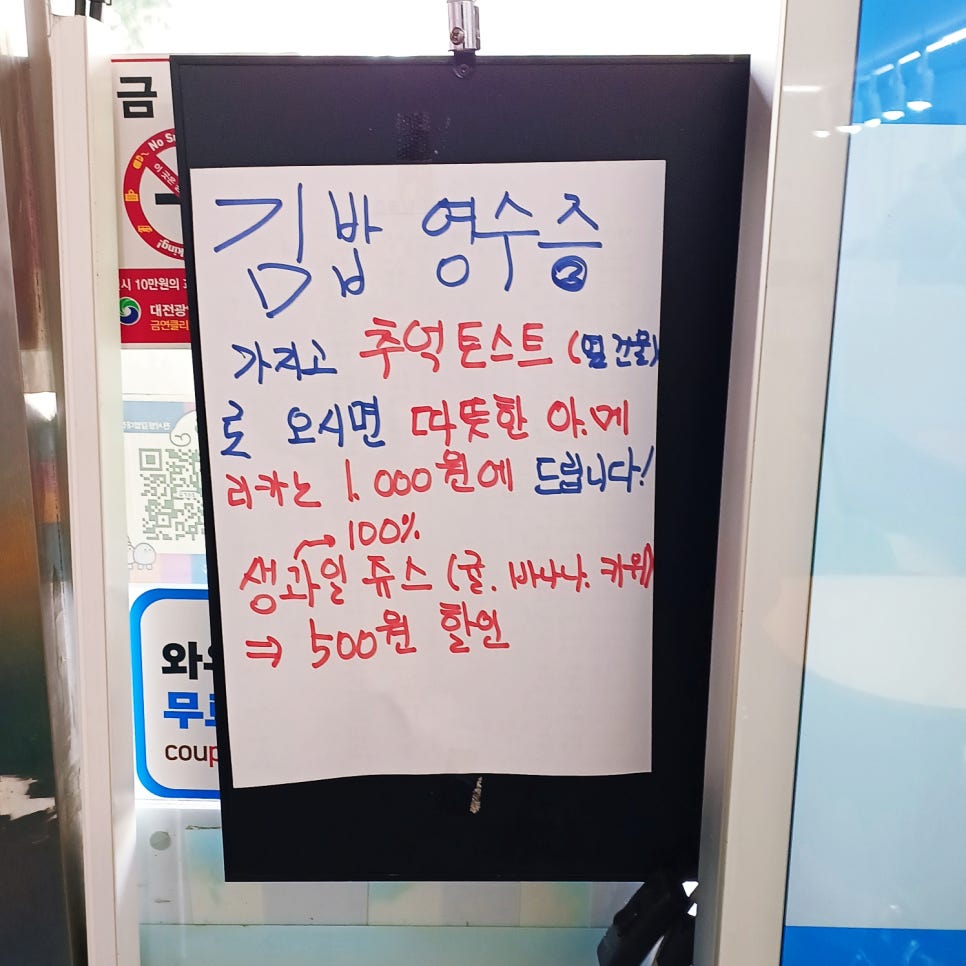 김밥 영수증
가지고 추억 토스트 (옆 건물)
로 오시면 따뜻한 아.메
리카노 1.000원에 드립니다!
→ 100%
생과일 쥬스 (귤. 바나나. 키위)
⇒ 500원 할인
금
No
이 곳은
king!
시 10만원의
대전광
금연클리
와
무료
coup